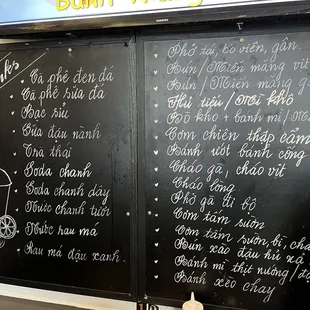 Bánh
Cà phê đen đá
Cà phê sữa đá
Bạc sỉu
Sữa đậu nành
Trà thái
Soda chanh
Soda chanh dây
Nước chanh tươi
Nước rau má
Rau má đậu xanh
Phở tái, bò viên, gân
Bún/Miến măng vịt
Bún/Miến măng g
Hủ tiếu/Mì khô
Bò kho + bánh mì/
Cơm chiên thập cẩm
Bánh ướt bánh cống
Cháo gà, cháo vịt
Cháo lòng
Phở gà
Cơm tấm sườn
Cơm tấm sườn, bì, ch
Bún xào đậu hũ xả
Bánh mì thịt nướng/
Bánh xèo chay